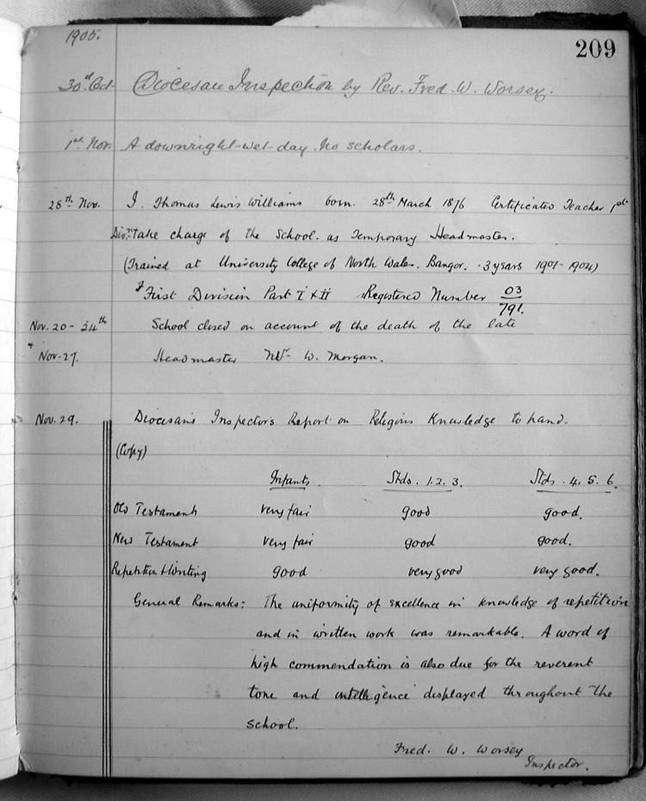 1905.
209
30th Oct. Diocesan Inspection by Rev. Fred. W. Worsey.
1st Nov. A downright-wet-day. No scholars.
28th Nov. I. Thomas Lewis Williams born 28th March 1876 Certificated Teacher 1st
Divn. take charge of the School. as Temporary Headmaster.
(Trained at University College of North Wales. Bangor. 3 years 1901-1904)
First Division Part I & II Registered Number 03/791.
Nov. 20 - 24th School closed on account of the death of the late
" Nov-27. Headmaster Mr. W. Morgan.
Nov. 29. Diocesan Inspector's Report on Religious Knowledge to hand.
(Copy)
Infants. Stds. 1. 2. 3. Stds. 4. 5. 6.
Old Testament very fair good good.
New Testament very fair good good.
Repetition & Writing good very good very good.
General Remarks: The uniformity of excellence in knowledge of repetition
and in written work was remarkable. A word of
high commendation is also due for the reverent
tone and intelligence displayed throughout the
school.
Fred. W. Worsey
Inspector.